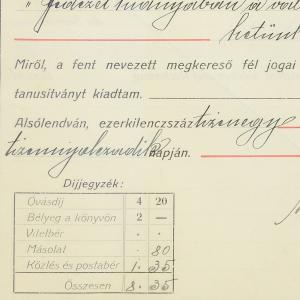 „ Fedezet hiányában a vál
hetünk
Miről, a fent nevezett megkereső fél jogai
tanusitványt kiadtam.
Alsólendván, ezerkilenczszáz tizenegy
tizennyolczadik napján.
Díjjegyzék:
Óvásdíj 4 20
Bélyeg a könyvön 2 —
Vitelbér . .
Másolat . 80
Közlés és postabér 1 . 35
Összesen 8 . 35